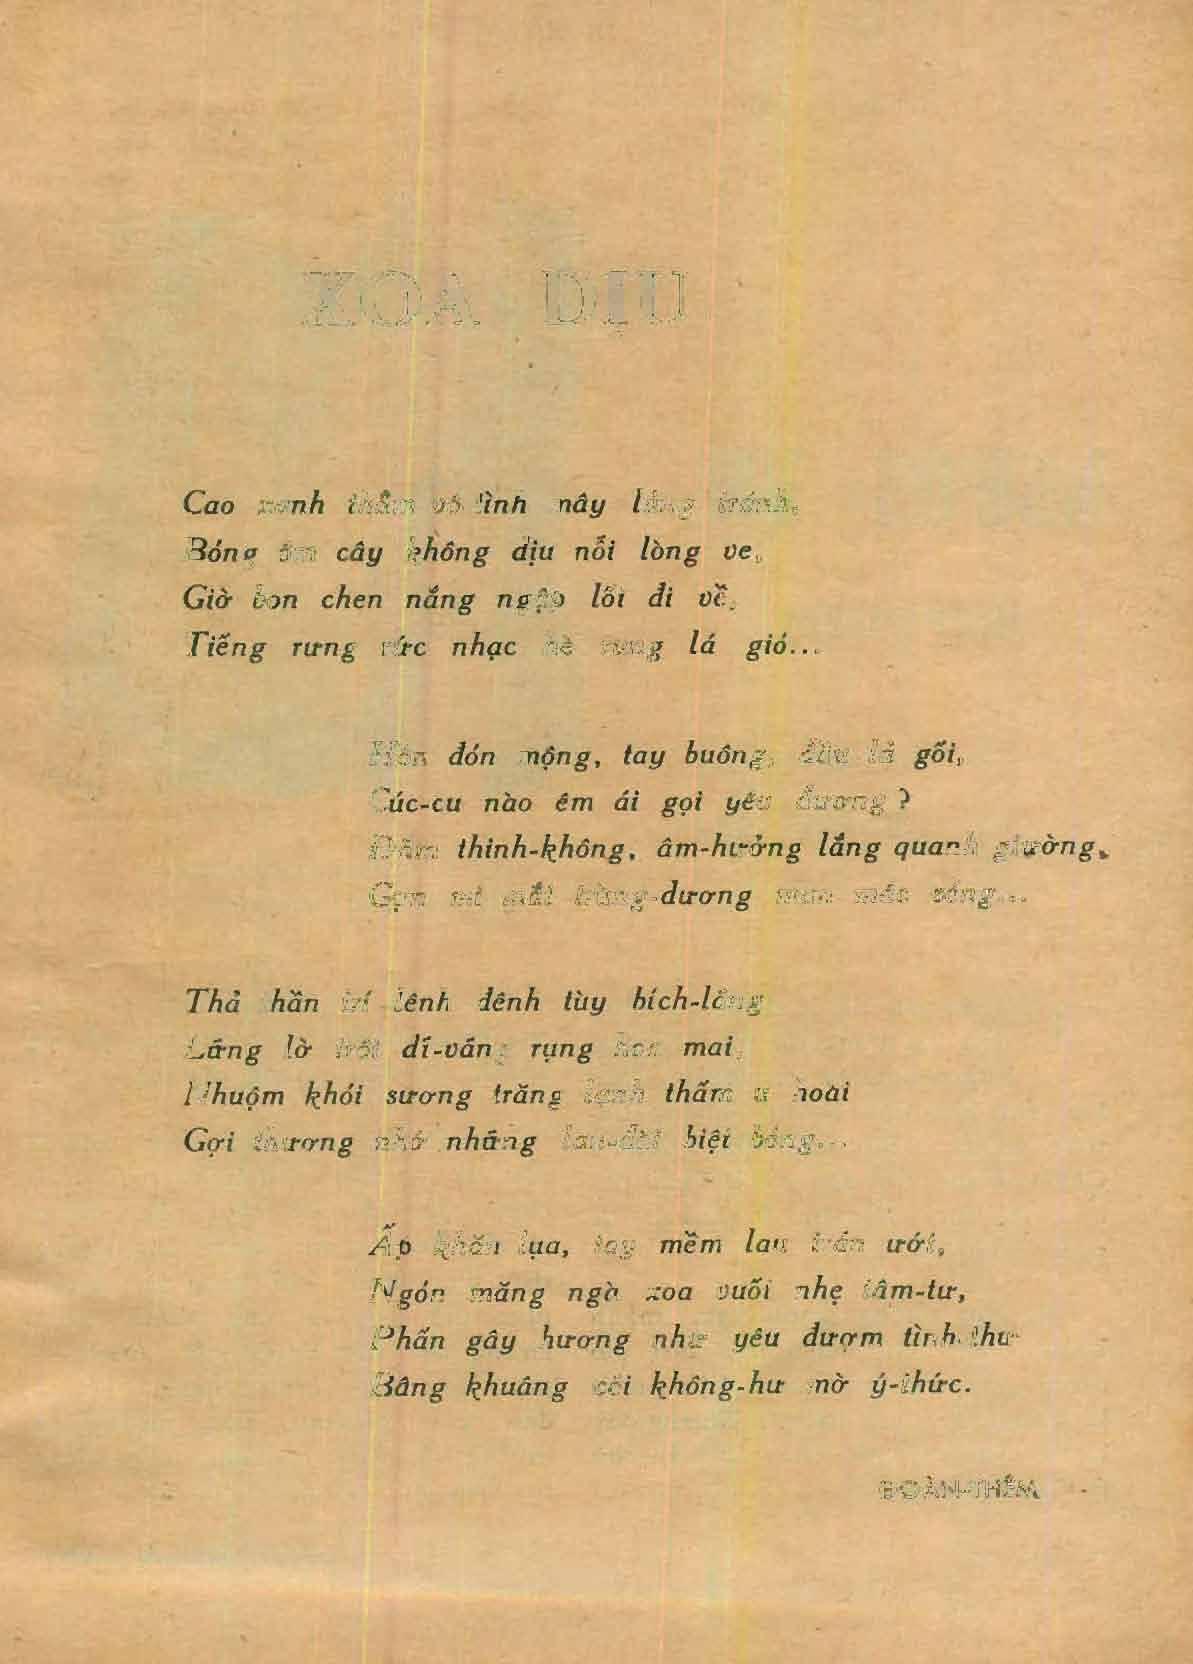 XOA DỊU
Cao xanh thẳm vô tình mây lảng tránh,
Bóng êm cây không dịu nỗi lòng ve,
Giờ bon chen nắng ngập lối đi về,
Tiếng rưng rức nhạc hè rung lá gió...
Hồn đón mộng, tay buông, đầu lả gối,
Cúc-cu nào êm ái gọi yêu đương ?
Đăm thinh-không, âm-hưởng lắng quanh giường,
Gợn mi mắt trùng-dương man mác sóng...
Thả hần trí lênh đênh tùy bích-lãng
Lửng lờ trôi dĩ-vãng rụng hoa mai,
Nhuộm khói sương trăng lạnh thấm u hoài
Gợi thương nhớ những lau-đài biệt bóng...
Ấp khăn lụa, tay mềm lau trán ướt,
Ngón măng ngà xoa vuốt nhẹ tâm-tư,
Phấn gây hương như yêu đượm tình-thư
Bâng khuâng cõi không-hư mờ ý-thức.
ĐOÀN-THÊM